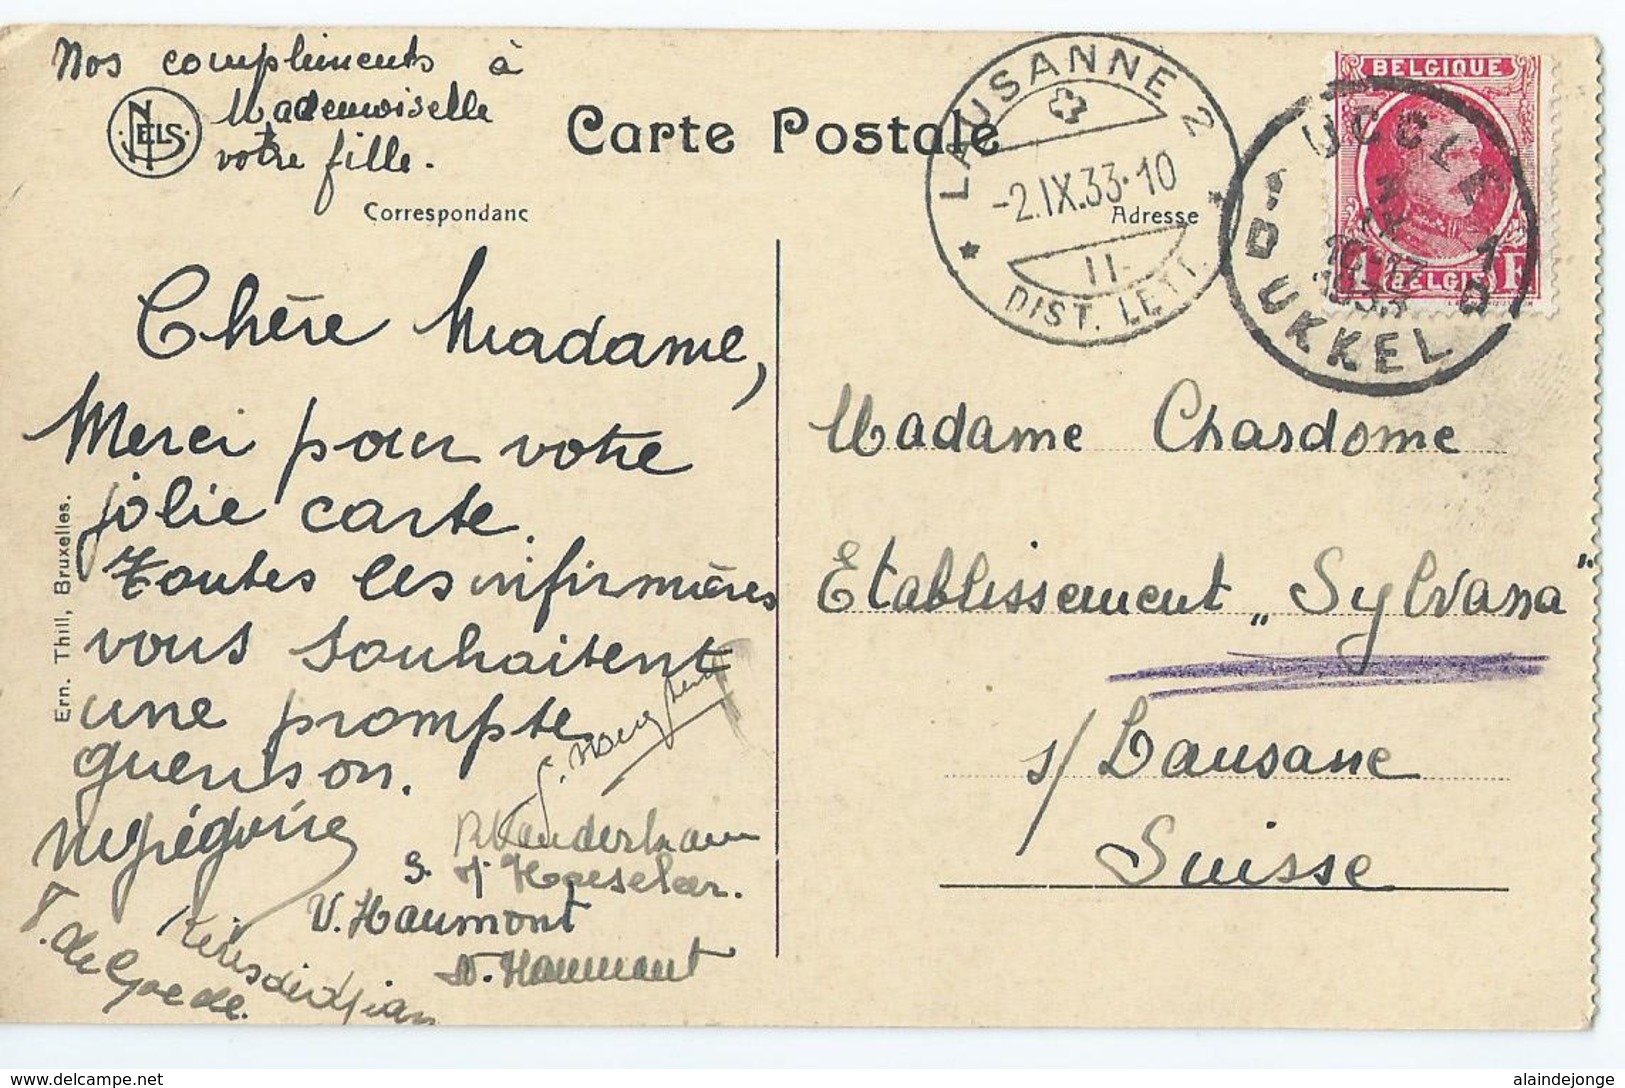 Nos compliments à
Mademoiselle
votre fille.
NELS
Carte Postale
Correspondanc
Adresse
LAUSANNE 2
-2.IX.33-10
II.
DIST. LETT.
BELGIQUE
BELGIE
1 F
UCCLE 1
10-17
1933
D UKKEL D
Chère Madame,
Merci pour votre
jolie carte.
Toutes les infirmières
vous souhaitent
une prompte
guerison.
Ern. Thill, Bruxelles.
Madame Chardome
Etablissement „Sylvana"
s/ Lausane
Suisse
V. Haumont
T. de Goede.
www.delcampe.net
alaindejonge